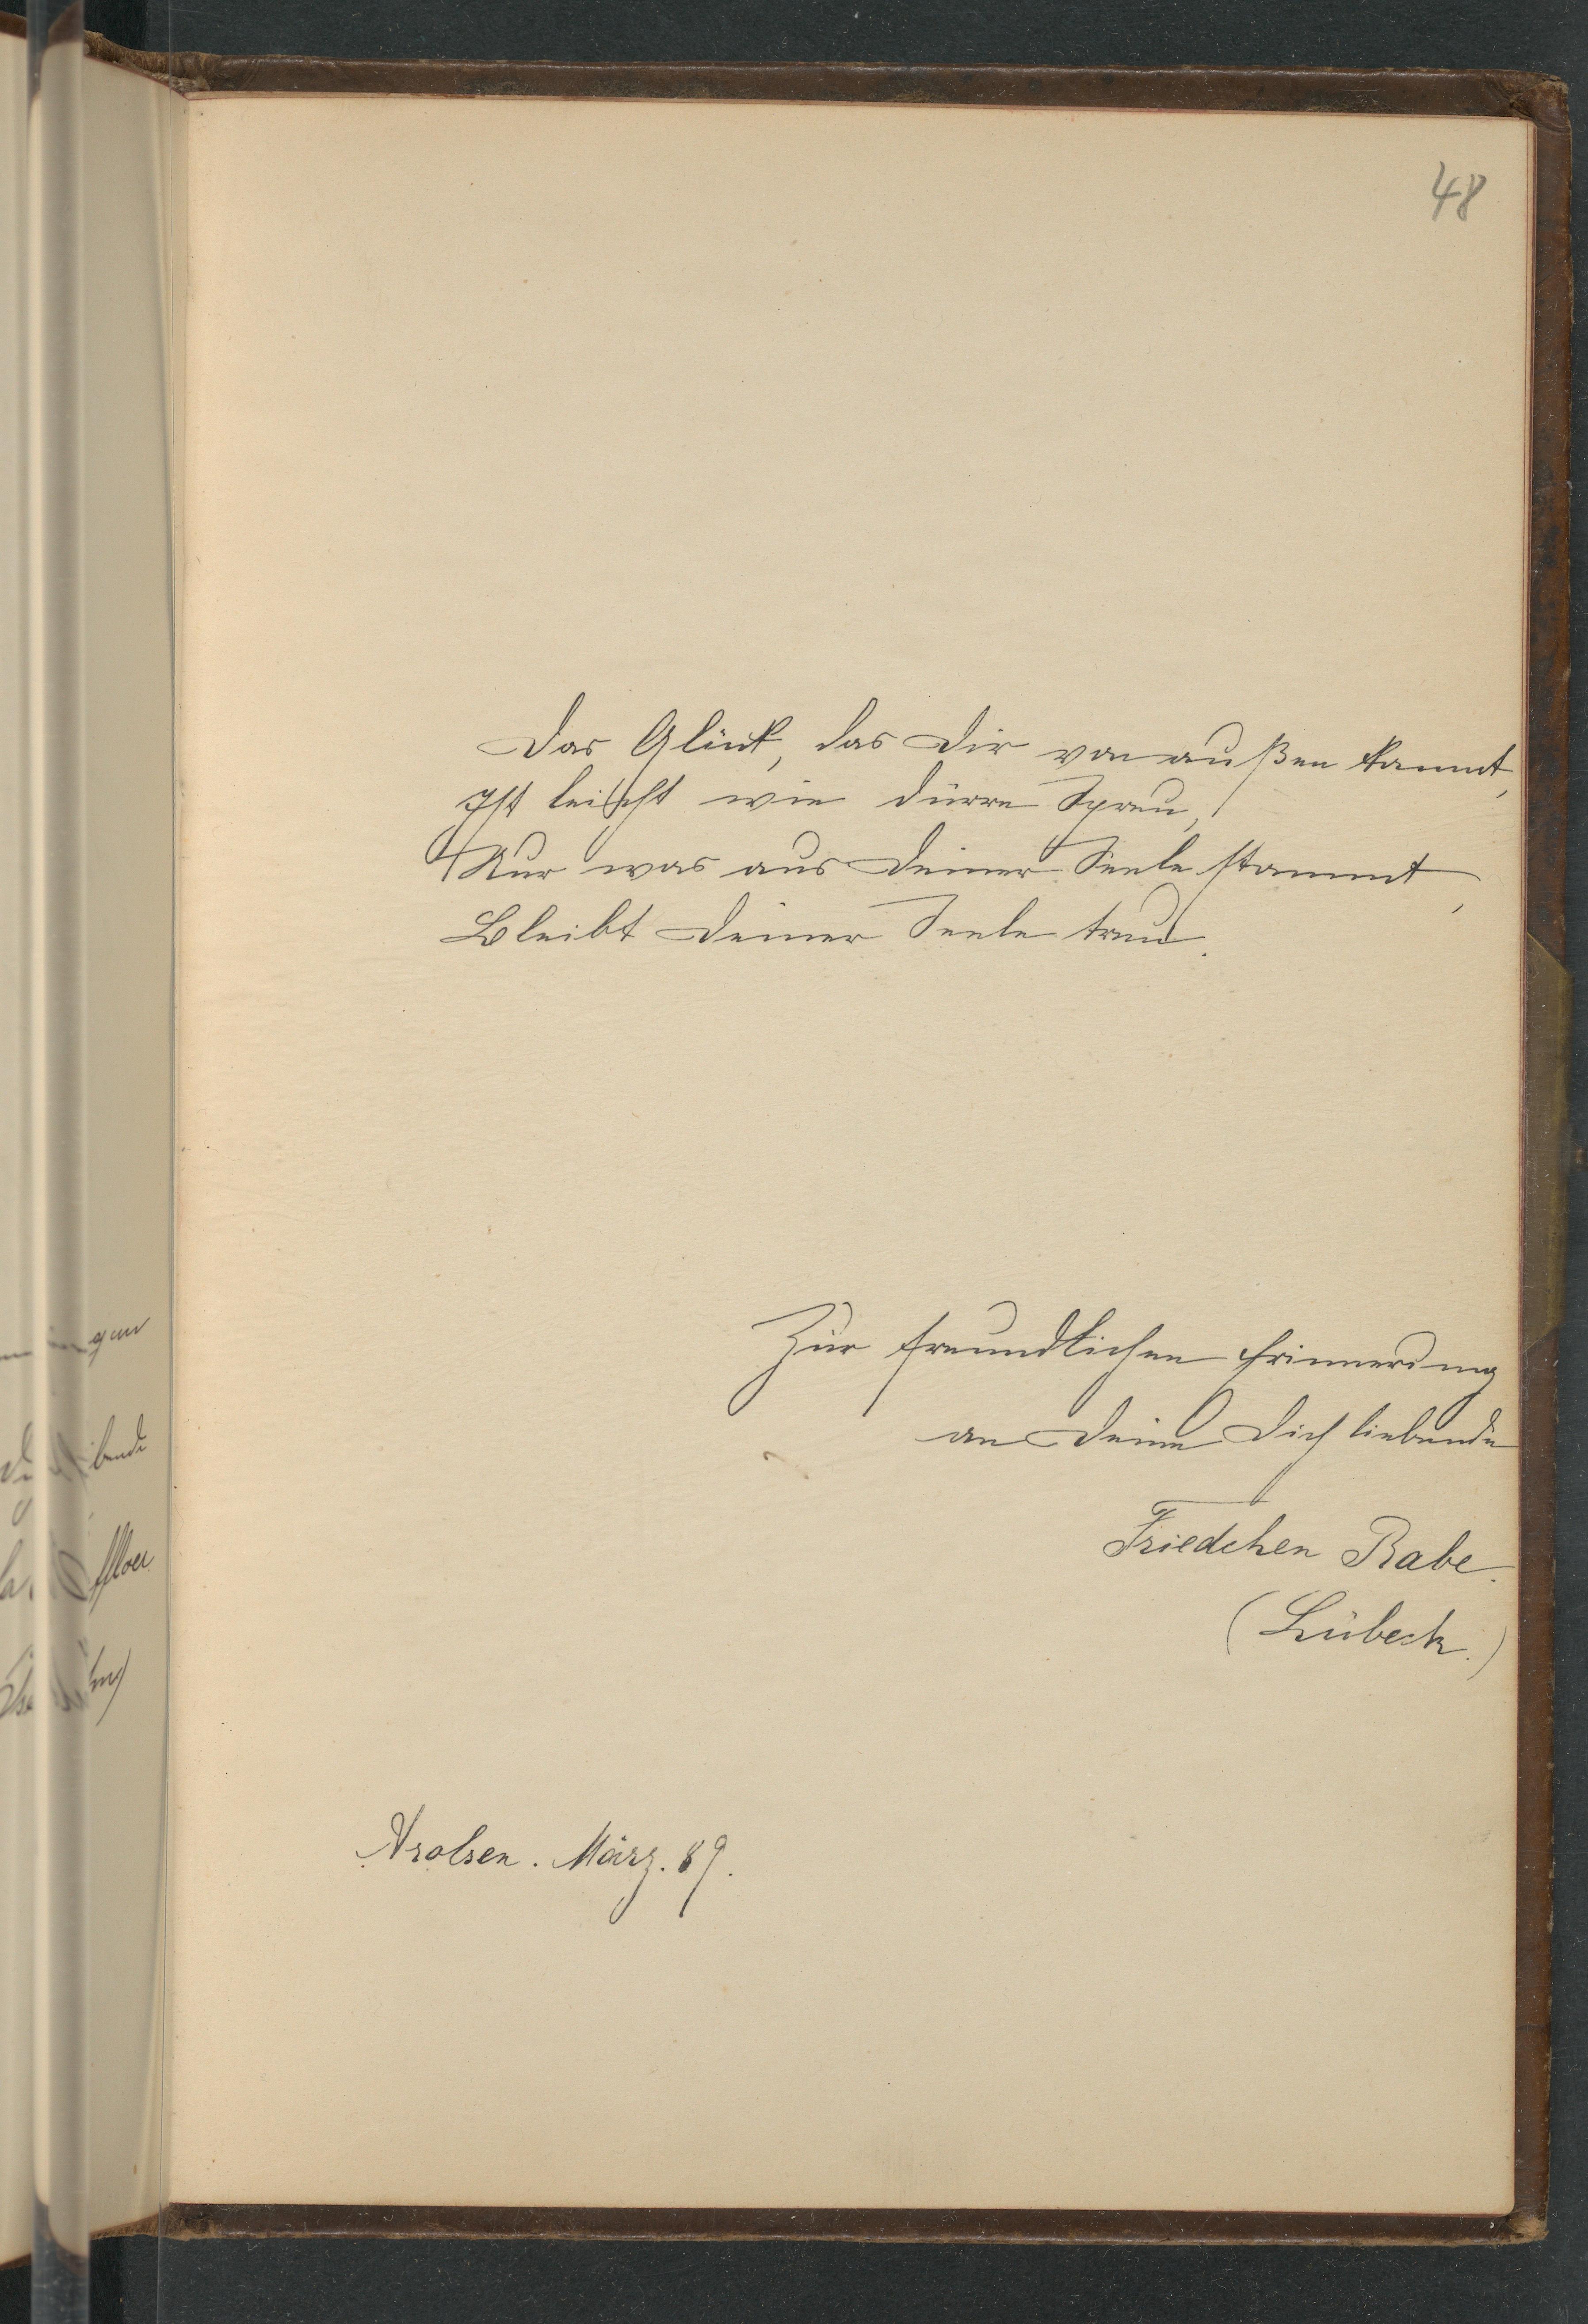 48
Das Glück, das Dir von außen kammt,
Ist leicht wie dürre Spreu,
Nur was aus Deiner Seele stammt,
Bleibt Deiner Seele treu.
Zur freundlichen Erinnerung
an Deine Dich liebende
Friedchen Rabe.
(Lübeck.)
Arolsen. März. 89.